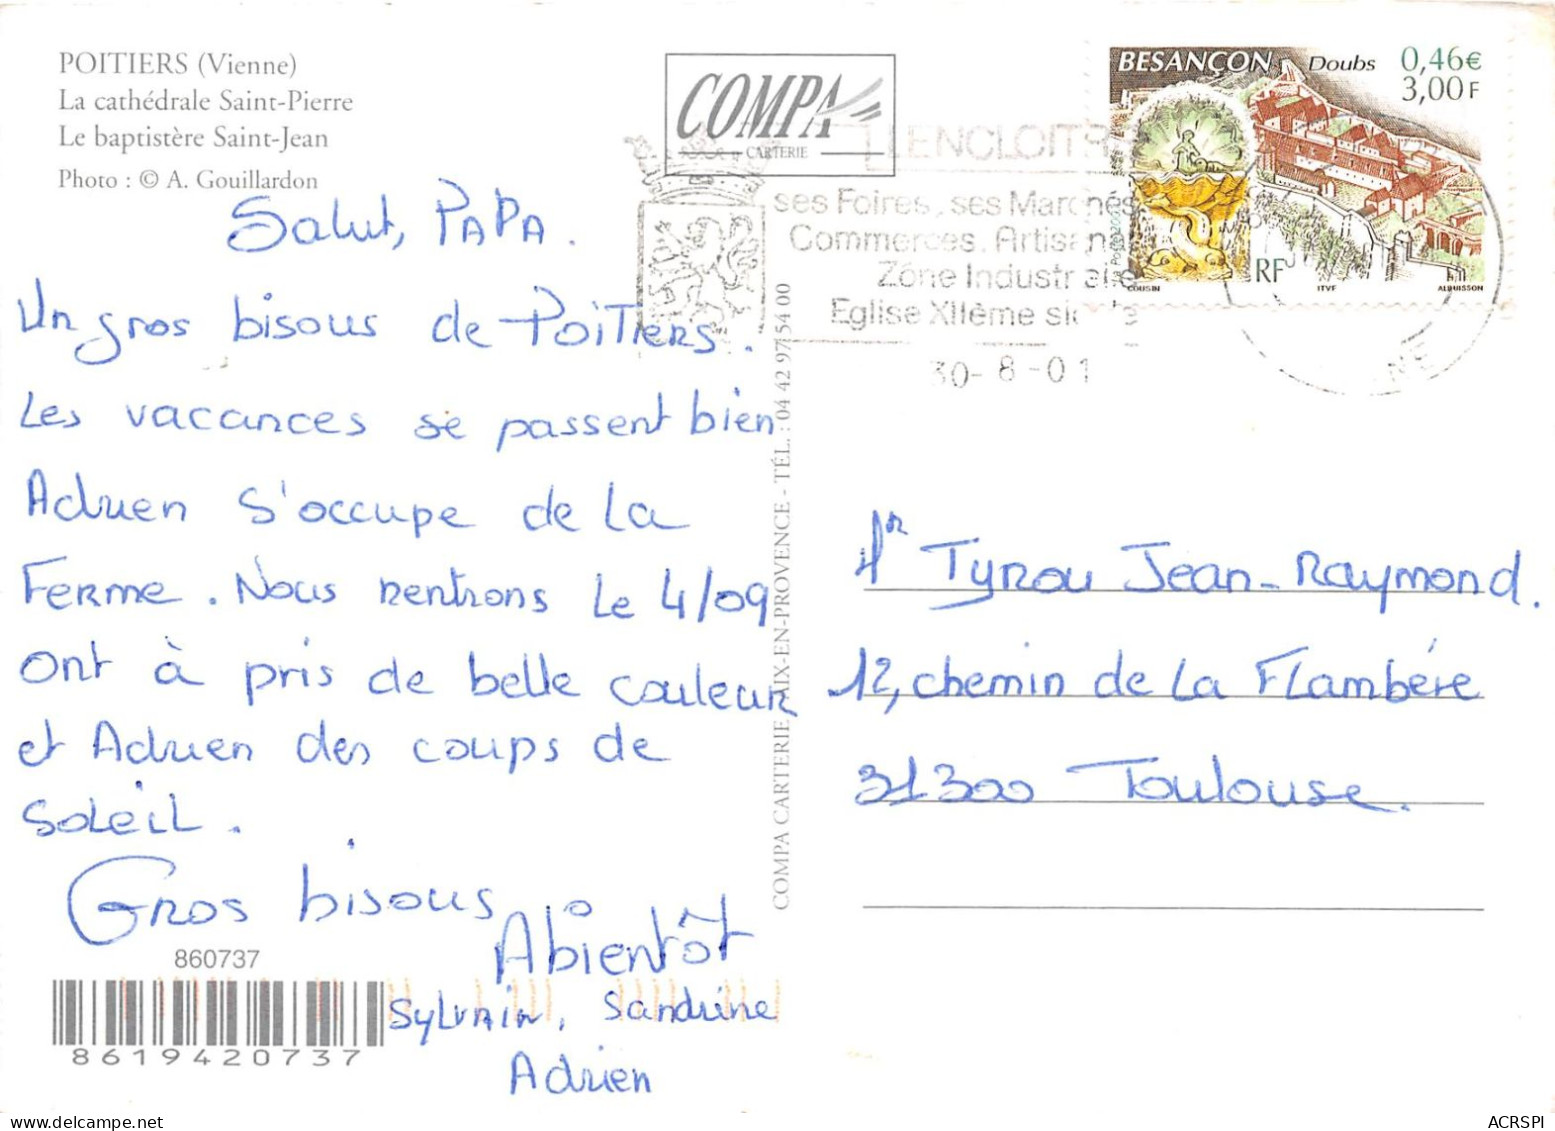 POITIERS (Vienne)
La cathédrale Saint-Pierre
Le baptistère Saint-Jean
Photo : © A. Gouillardon
COMPA
CARTERIE
BESANÇON Doubs 0,46€
3,00F
RF
COUSIN ITVF ALBUISSON
LENCLOITR
ses Foires, ses Marchés
Commerces. Artisanat
Zone Industrielle
Eglise XIIème siècle
30-8-01
Salut, PAPA.
Un gros bisous de Poitiers.
Les vacances se passent bien
Adrien s'occupe de la
Ferme. Nous rentrons le 4/09
ont à pris de belle couleur
et Adrien des coups de
Soleil.
Gros bisous
Abientôt
Sylvain, Sandrine
Adrien
COMPA CARTERIE - AIX-EN-PROVENCE - TÉL. : 04 42 97 54 00
Mr Tyrou Jean-Raymond.
12, chemin de la Flambére
31300 Toulouse.
860737
8619420737
ACRSPI